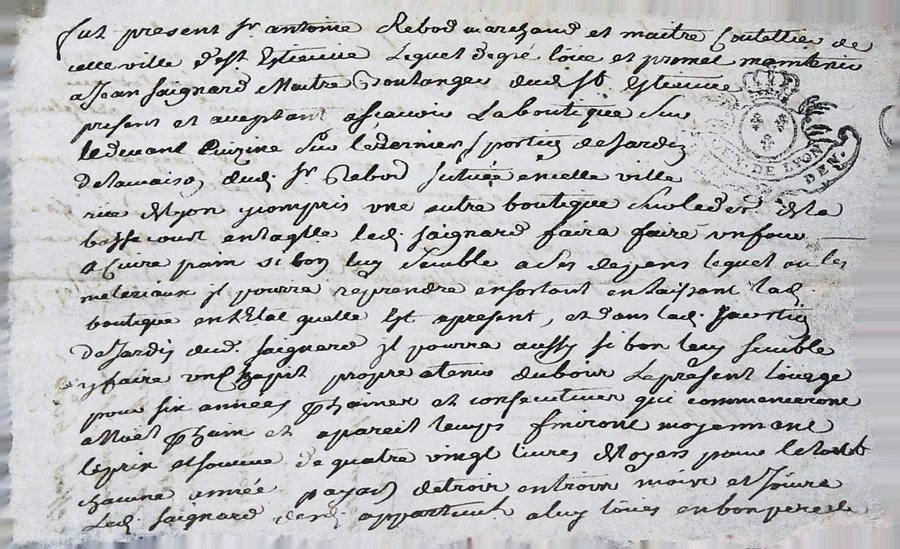 fut present Sr antoine Rebod marchand et maitre Coutellier de
cette ville d'est Estienne Lequel de gré loüe et promet maintenir
a Jean Saignard Maitre Boulanger dud St Estienne
present et aceptant ascavoir La boutique sur
le devant Cuizine sur le dernier portion de Jardin
de la maison dud. Sr Rebod scituée en cette ville
rüe de Lyon y compris une autre boutique sur le der de la
basse court en laqlle led. Saignard faira faire un four
a Cuire pain si bon luy semble a ses depens lequel ou les
materiaux il pourra reprendre en sortant en laissant lad.
boutique en l'Etat quelle Est apresent, et dans lad. portion
de Jardin dud. Saignard il pourra aussy si bon luy semble
y faire un propre a tenir du bois Le present loüage
pour six années prochaines et consecutives qui commenceront
a Noel prochain et a pareil temps finiront moyennant
le prix et somme de quatre vingt livres de loyer pour le tout
chacune année payab de trois en trois mois et Joüira
Led. Saignard desd. appartent a luy loüés en bon pere de